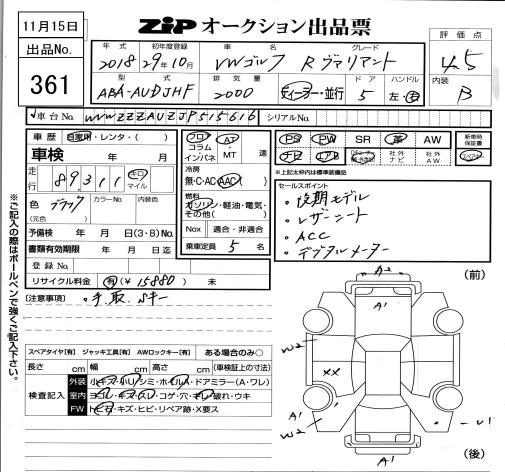 11月15日
ZIP オークション出品票
評価点
4.5
出品No.
361
年式 初年度登録 車名 グレード
2018 29年10月 VWゴルフ Rヴァリアント
内装
B
型式 排気量 ドア ハンドル
ABA-AUDJHF 2000 ディーラー・並行 5 左・右
車台No. WVWZZZAUZJP515616 シリアルNo.
車歴 自家用・レンタ・( )
車検 年 月
走行 89,311 キロ マイル
色 ブラック
(元色)
カラーNo. 内装色
予備検 年 月 日(3・8)No.
書類有効期限 年 月 日迄
登録No.
リサイクル料金 有(¥15880) 未
フロア コラム インパネ
AT・MT 速
冷房
無・C・AC・AAC( )
燃料
ガソリン・軽油・電気・その他( )
Nox 適合・非適合
乗車定員 5 名
PS PW SR 革 AW
ナビ エアB
社外ナビ 社外AW
新車時保証書
※上記太枠内は標準装備品
セールスポイント
・後期モデル
・レザーシート
・ACC
・デジタルメーター
(注意事項)
・手、取、Sキー
スペアタイヤ【有】 ジャッキ工具【有】 AWロックキー【有】 ある場合のみ○
長さ cm 幅 cm 高さ cm (車検証上の寸法)
検査記入
外装 小キズ・小U・シミ・ホイルA・ドアミラー(A・ワレ)
室内 ヨゴレ・キズ・スレ・コゲ・穴・キレ・破れ・ウキ
FW トビ石・キズ・ヒビ・リペア跡・X要ス
※ご記入の際はボールペンで強くご記入下さい。
(前)
A2
A1
W2
XX
A1
W2
U1
A1
(後)